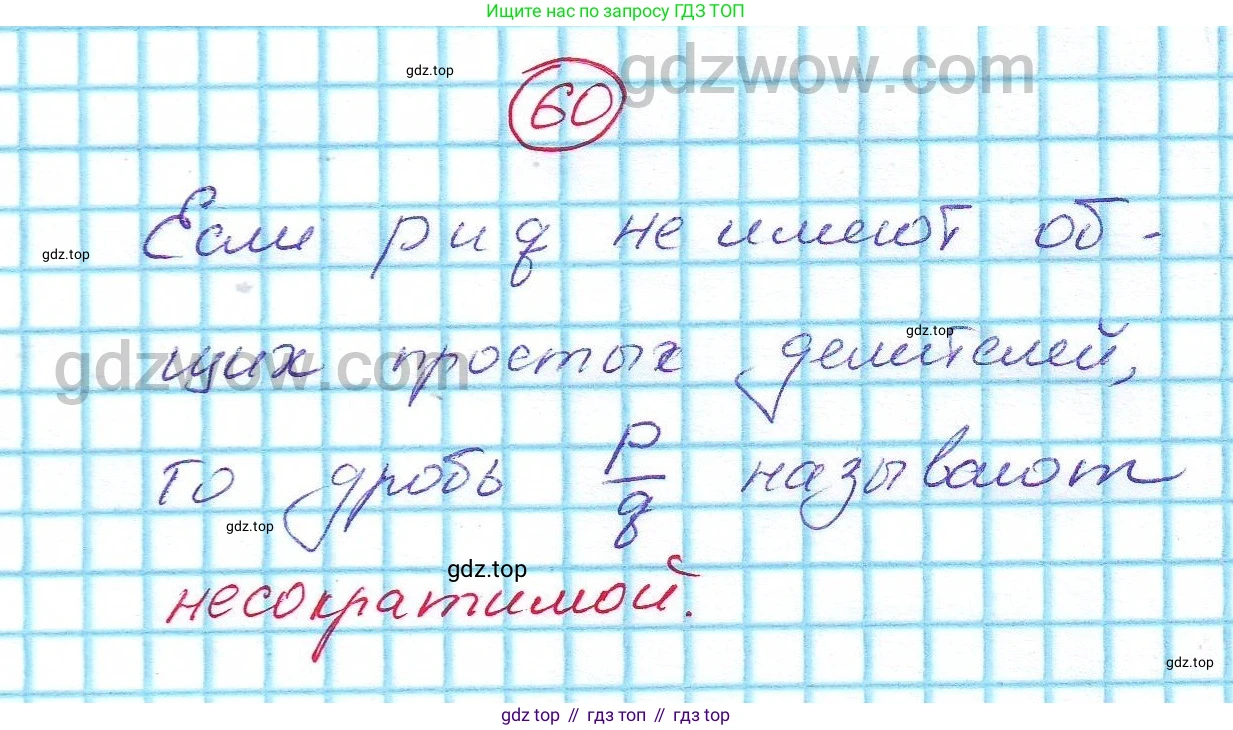 Ищите нас по запросу ГДЗ ТОП
gdz.top
60
gdzwow.com
Если p и q не имеют об-
gdz.top
gdz.top
щих простых делителей,
gdzwow.com
то дробь p/q называют
gdz.top
gdz.top
несократимой.
gdz.top
gdz top // гдз топ // гдз top